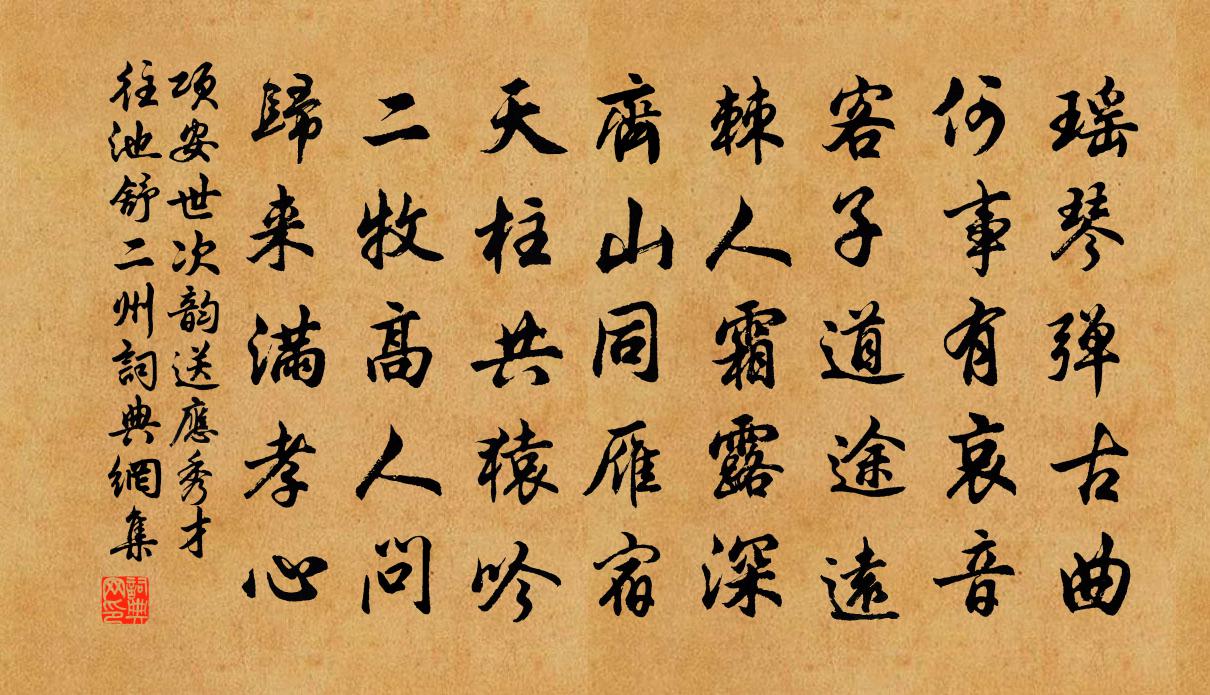 瑶琴弹古曲
何事有哀音
客子道途远
棘人霜露深
齊山同雁宿
天柱共猿吟
二牧高人问
歸来满孝心
项安世次韵送應秀才
往池舒二州詞典網集
詞典网印